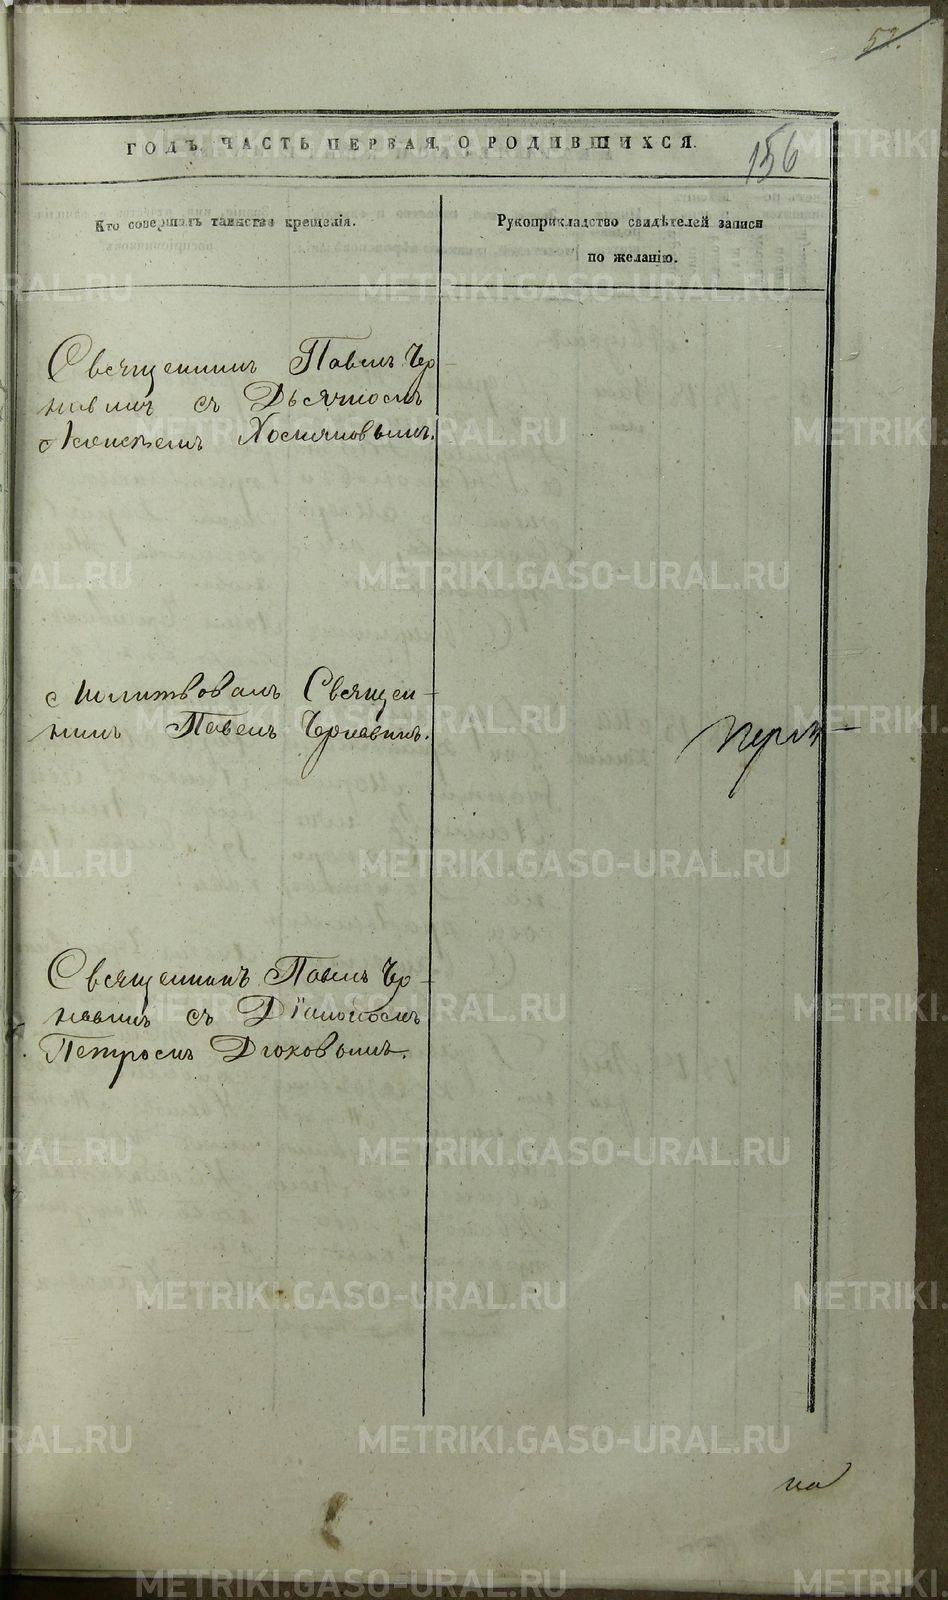 57.
156
ГОДЪ, ЧАСТЬ ПЕРВАЯ, О РОДИВШИХСЯ.
Кто совершалъ таинство крещенія.
Рукоприкладство свидѣтелей записи
по желанію.
Священникъ Павелъ Чер
навинъ съ Дьячкомъ
Хосияновымъ.
Молитвовалъ Священ-
никъ Павелъ Чернавинъ.
Священникъ Павелъ Чер-
навинъ съ Діакономъ
Петромъ Дюковымъ.
на
METRIKI.GASO-URAL.RU